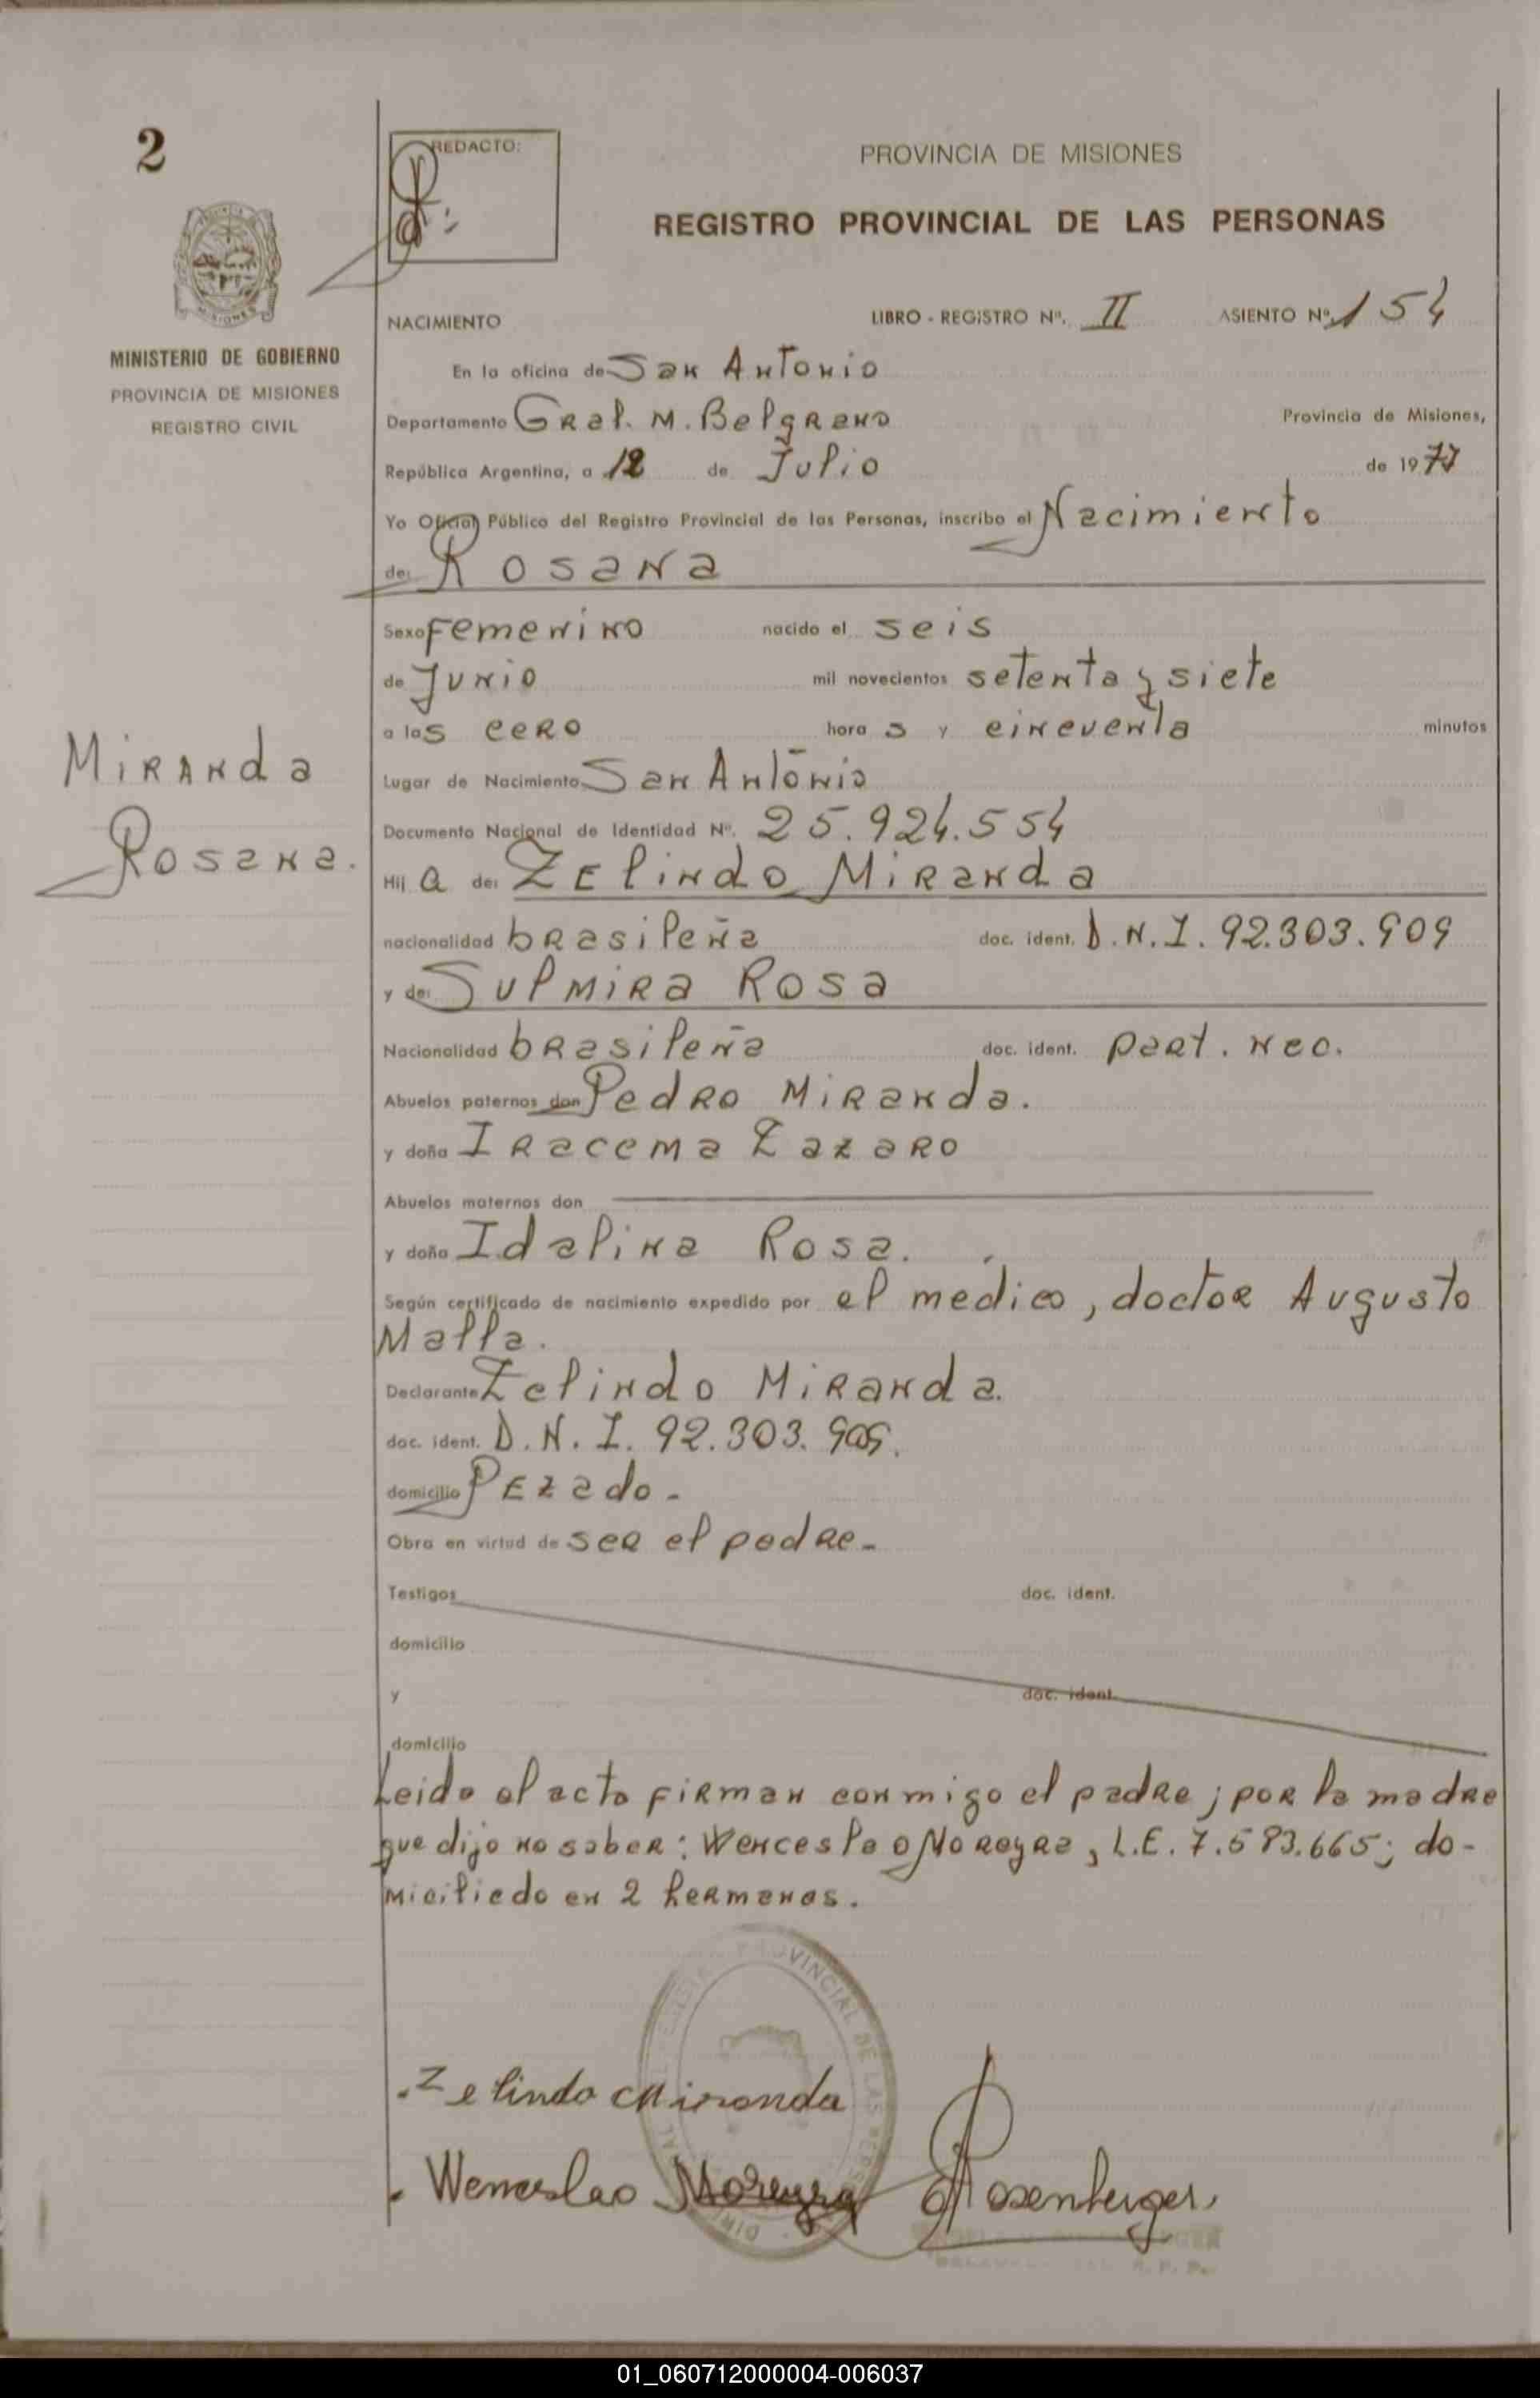 2
REDACTO:
PROVINCIA DE MISIONES
REGISTRO PROVINCIAL DE LAS PERSONAS
MISIONES
MINISTERIO DE GOBIERNO
PROVINCIA DE MISIONES
REGISTRO CIVIL
NACIMIENTO LIBRO - REGISTRO Nº. II ASIENTO Nº. 154
En la oficina de San Antonio
Departamento Gral. M. Belgrano Provincia de Misiones,
República Argentina, a 12 de Julio de 1977
Yo Oficial Público del Registro Provincial de las Personas, inscribo el Nacimiento
de: Rosana
Sexo Femenino nacido el seis
de Junio mil novecientos setenta y siete
a las cero hora s y cincuenta minutos
Miranda
Rosana.
Lugar de Nacimiento San Antonio
Documento Nacional de Identidad Nº. 25.924.554
Hij a de: Zelindo Miranda
nacionalidad brasileña doc. ident. D.N.I. 92.303.909
y de: Sulmira Rosa
Nacionalidad brasileña doc. ident. part. nac.
Abuelos paternos don Pedro Miranda.
y doña Iracema Lazaro
Abuelos maternos don
y doña Idalina Rosa.
Según certificado de nacimiento expedido por el médico, doctor Augusto
Malla.
Declarante Zelindo Miranda.
doc. ident. D.N.I. 92.303.909.
domicilio Pezado -
Obra en virtud de ser el padre -
Testigos doc. ident.
domicilio
y doc. ident.
domicilio
Leida el acta firman conmigo el padre; por la madre
que dijo no saber: Wenceslao Noreyra, L.E. 7.583.665; do-
miciliado en 2 hermanas.
PROVINCIAL DE LAS
. Zelindo Miranda
. Wenceslao Rosenberger
01_060712000004-006037